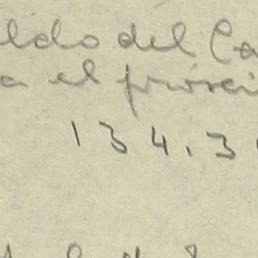 ldo del Ca
a el próxi
134.3